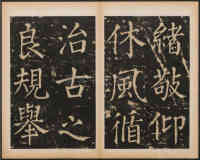 緒敬仰
休風循
治古之
良規舉